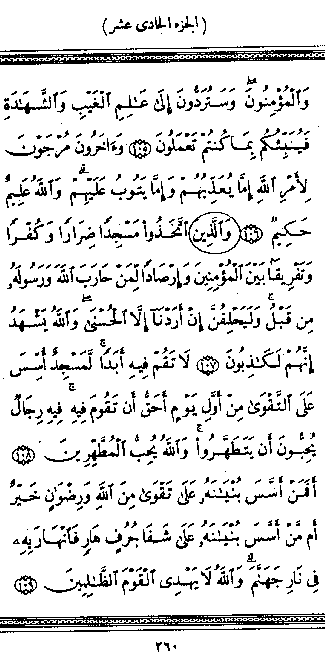 (الجزء الحادى عشر)
وَالْمُؤْمِنُونَ وَسَتُرَدُّونَ إِلَى عَلِمِ الْغَيْبِ وَالشَّهَدَةِ
فَيُنَبِّئُكُم بِمَا كُنتُمْ تَعْمَلُونَ ١٠٥ وَءَاخَرُونَ مُرْجَوْنَ
لِأَمْرِ اللَّهِ إِمَّا يُعَذِّبُهُمْ وَإِمَّا يَتُوبُ عَلَيْهِمْ وَاللَّهُ عَلِيمٌ
حَكِيمٌ ١٠٦ وَالَّذِينَ اتَّخَذُوا مَسْجِدًا ضِرَارًا وَكُفْرًا
وَتَفْرِيقًا بَيْنَ الْمُؤْمِنِينَ وَإِرْصَادًا لِّمَنْ حَارَبَ اللَّهَ وَرَسُولَهُ
مِن قَبْلُ وَلَيَحْلِفُنَّ إِنْ أَرَدْنَا إِلَّا الْحُسْنَى وَاللَّهُ يَشْهَدُ
إِنَّهُمْ لَكَذِبُونَ ١٠٧ لَا تَقُمْ فِيهِ أَبَدًا لَّمَسْجِدٌ أُسِّسَ
عَلَى التَّقْوَى مِنْ أَوَّلِ يَوْمٍ أَحَقُّ أَن تَقُومَ فِيهِ فِيهِ رِجَالٌ
يُحِبُّونَ أَن يَتَطَهَّرُوا وَاللَّهُ يُحِبُّ الْمُطَّهِّرِينَ ١٠٨
أَفَمَنْ أَسَّسَ بُنْيَنَهُ عَلَى تَقْوَى مِنَ اللَّهِ وَرِضْوَنٍ خَيْرٌ
أَم مَّنْ أَسَّسَ بُنْيَنَهُ عَلَى شَفَا جُرُفٍ هَارٍ فَانْهَارَ بِهِ
فِى نَارِ جَهَنَّمَ وَاللَّهُ لَا يَهْدِى الْقَوْمَ الظَّلِمِينَ ١٠٩
٢٦٠